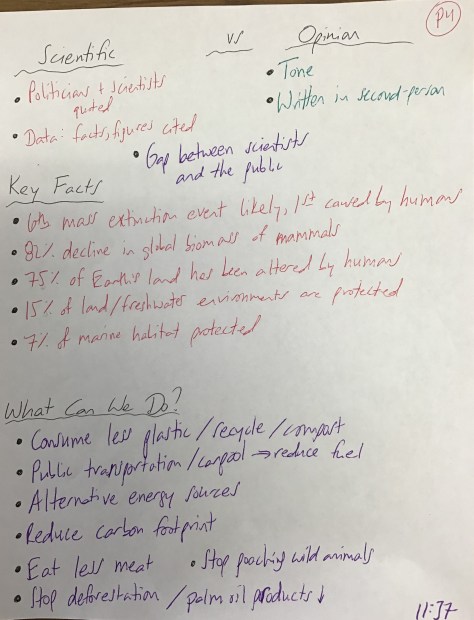 P4
Scientific vs Opinion
• Politicians + scientists
quoted
• Data: facts, figures cited
• Tone
• Written in second-person
• Gap between scientists
and the public
Key Facts
• 6th mass extinction event likely, 1st caused by humans
• 82% decline in global biomass of mammals
• 75% of Earth's land has been altered by humans
• 15% of land/freshwater environments are protected
• 7% of marine habitat protected
What Can We Do?
• Consume less plastic/recycle/compost
• Public transportation/carpool → reduce fuel
• Alternative energy sources
• Reduce carbon footprint
• Eat less meat • Stop poaching wild animals
• Stop deforestation / palm oil products ↓
11:37